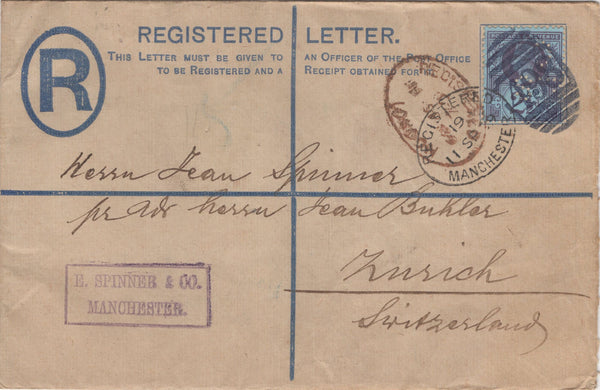 REGISTERED LETTER.
THIS LETTER MUST BE GIVEN TO AN OFFICER OF THE POST OFFICE
TO BE REGISTERED AND A RECEIPT OBTAINED FOR IT.
R
REGISTERED
MANCHESTER
Herrn Jean Spinner
pr Adr Herrn Jean Buhler
Zurich
Switzerland
E. SPINNER & CO.
MANCHESTER.